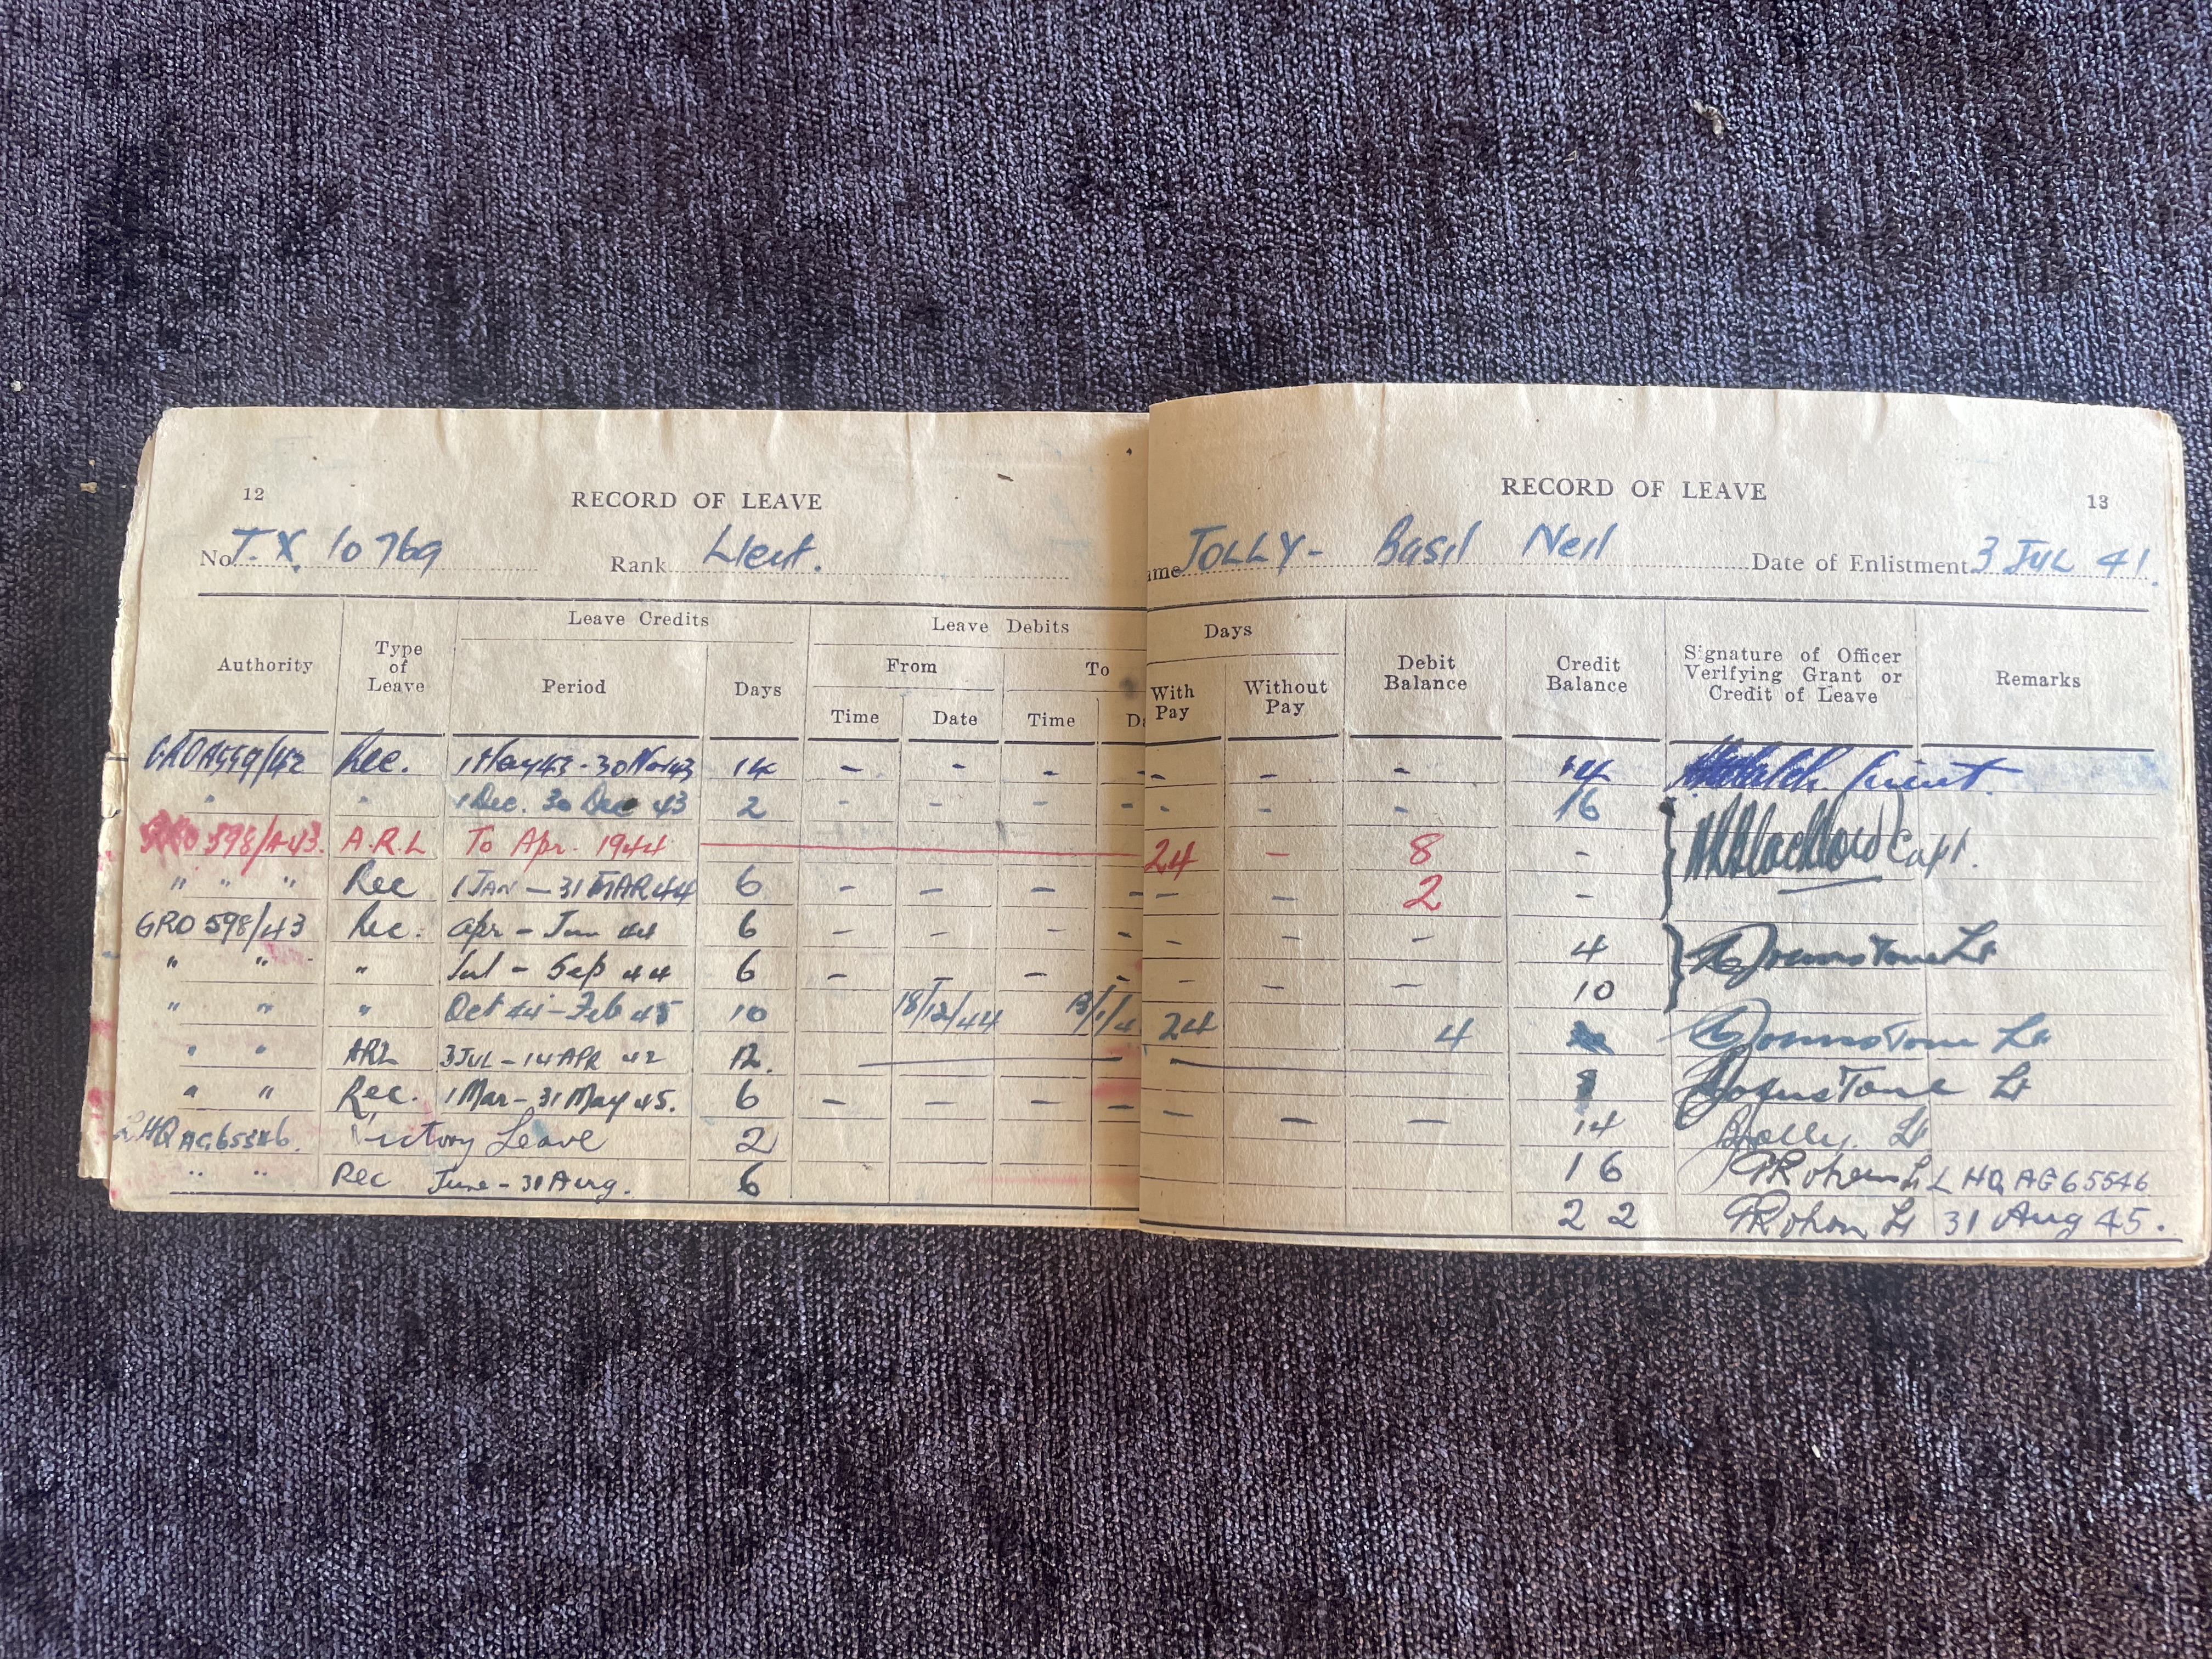 12
RECORD OF LEAVE
No. T.X. 10769 Rank Lieut.
Authority Type of Leave Leave Credits Leave Debits
Period Days From To
Time Date Time Da
GRO A559/42 Rec. 1 May 43 - 30 Nov 43 14 - - -
" " 1 Dec. 30 Dec 43 2 - - -
GRO 598/A43. A.R.L To Apr. 1944
" " " Rec 1 JAN - 31 MAR 44 6 - - -
GRO 598/43 Rec. Apr - Jun 44 6 - - -
" " " Jul - Sep 44 6 - -
" " " Oct 44 - Feb 45 10 18/12/44 13/1/4
" " ARL 3 JUL - 14 APR 42 12.
" " Rec. 1 Mar - 31 May 45. 6 - - -
LHQ AG65546. Victory Leave 2
" " Rec June - 31 Aug. 6
RECORD OF LEAVE
13
ame JOLLY - Basil Neil Date of Enlistment 3 JUL 41.
Days Debit Balance Credit Balance Signature of Officer Verifying Grant or Credit of Leave Remarks
With Pay Without Pay
- - - 14 Lieut.
- - - 16
24 - 8 - Capt.
- - 2 -
- - - 4 Johnstone Lt
- - - 10
24 4 Johnstone Lt
8 Johnstone Lt
- - - 14 Jolly. Lt
16 Lt LHQ AG65546
22 Lt 31 Aug 45.